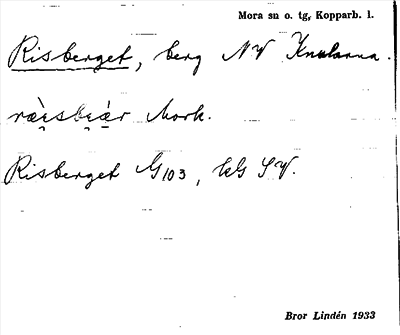 Mora sn o. tg, Kopparb. l.
Risberget, berg NV Knubarna.
Mork.
Risberget G103, kG SV.
Bror Lindén 1933